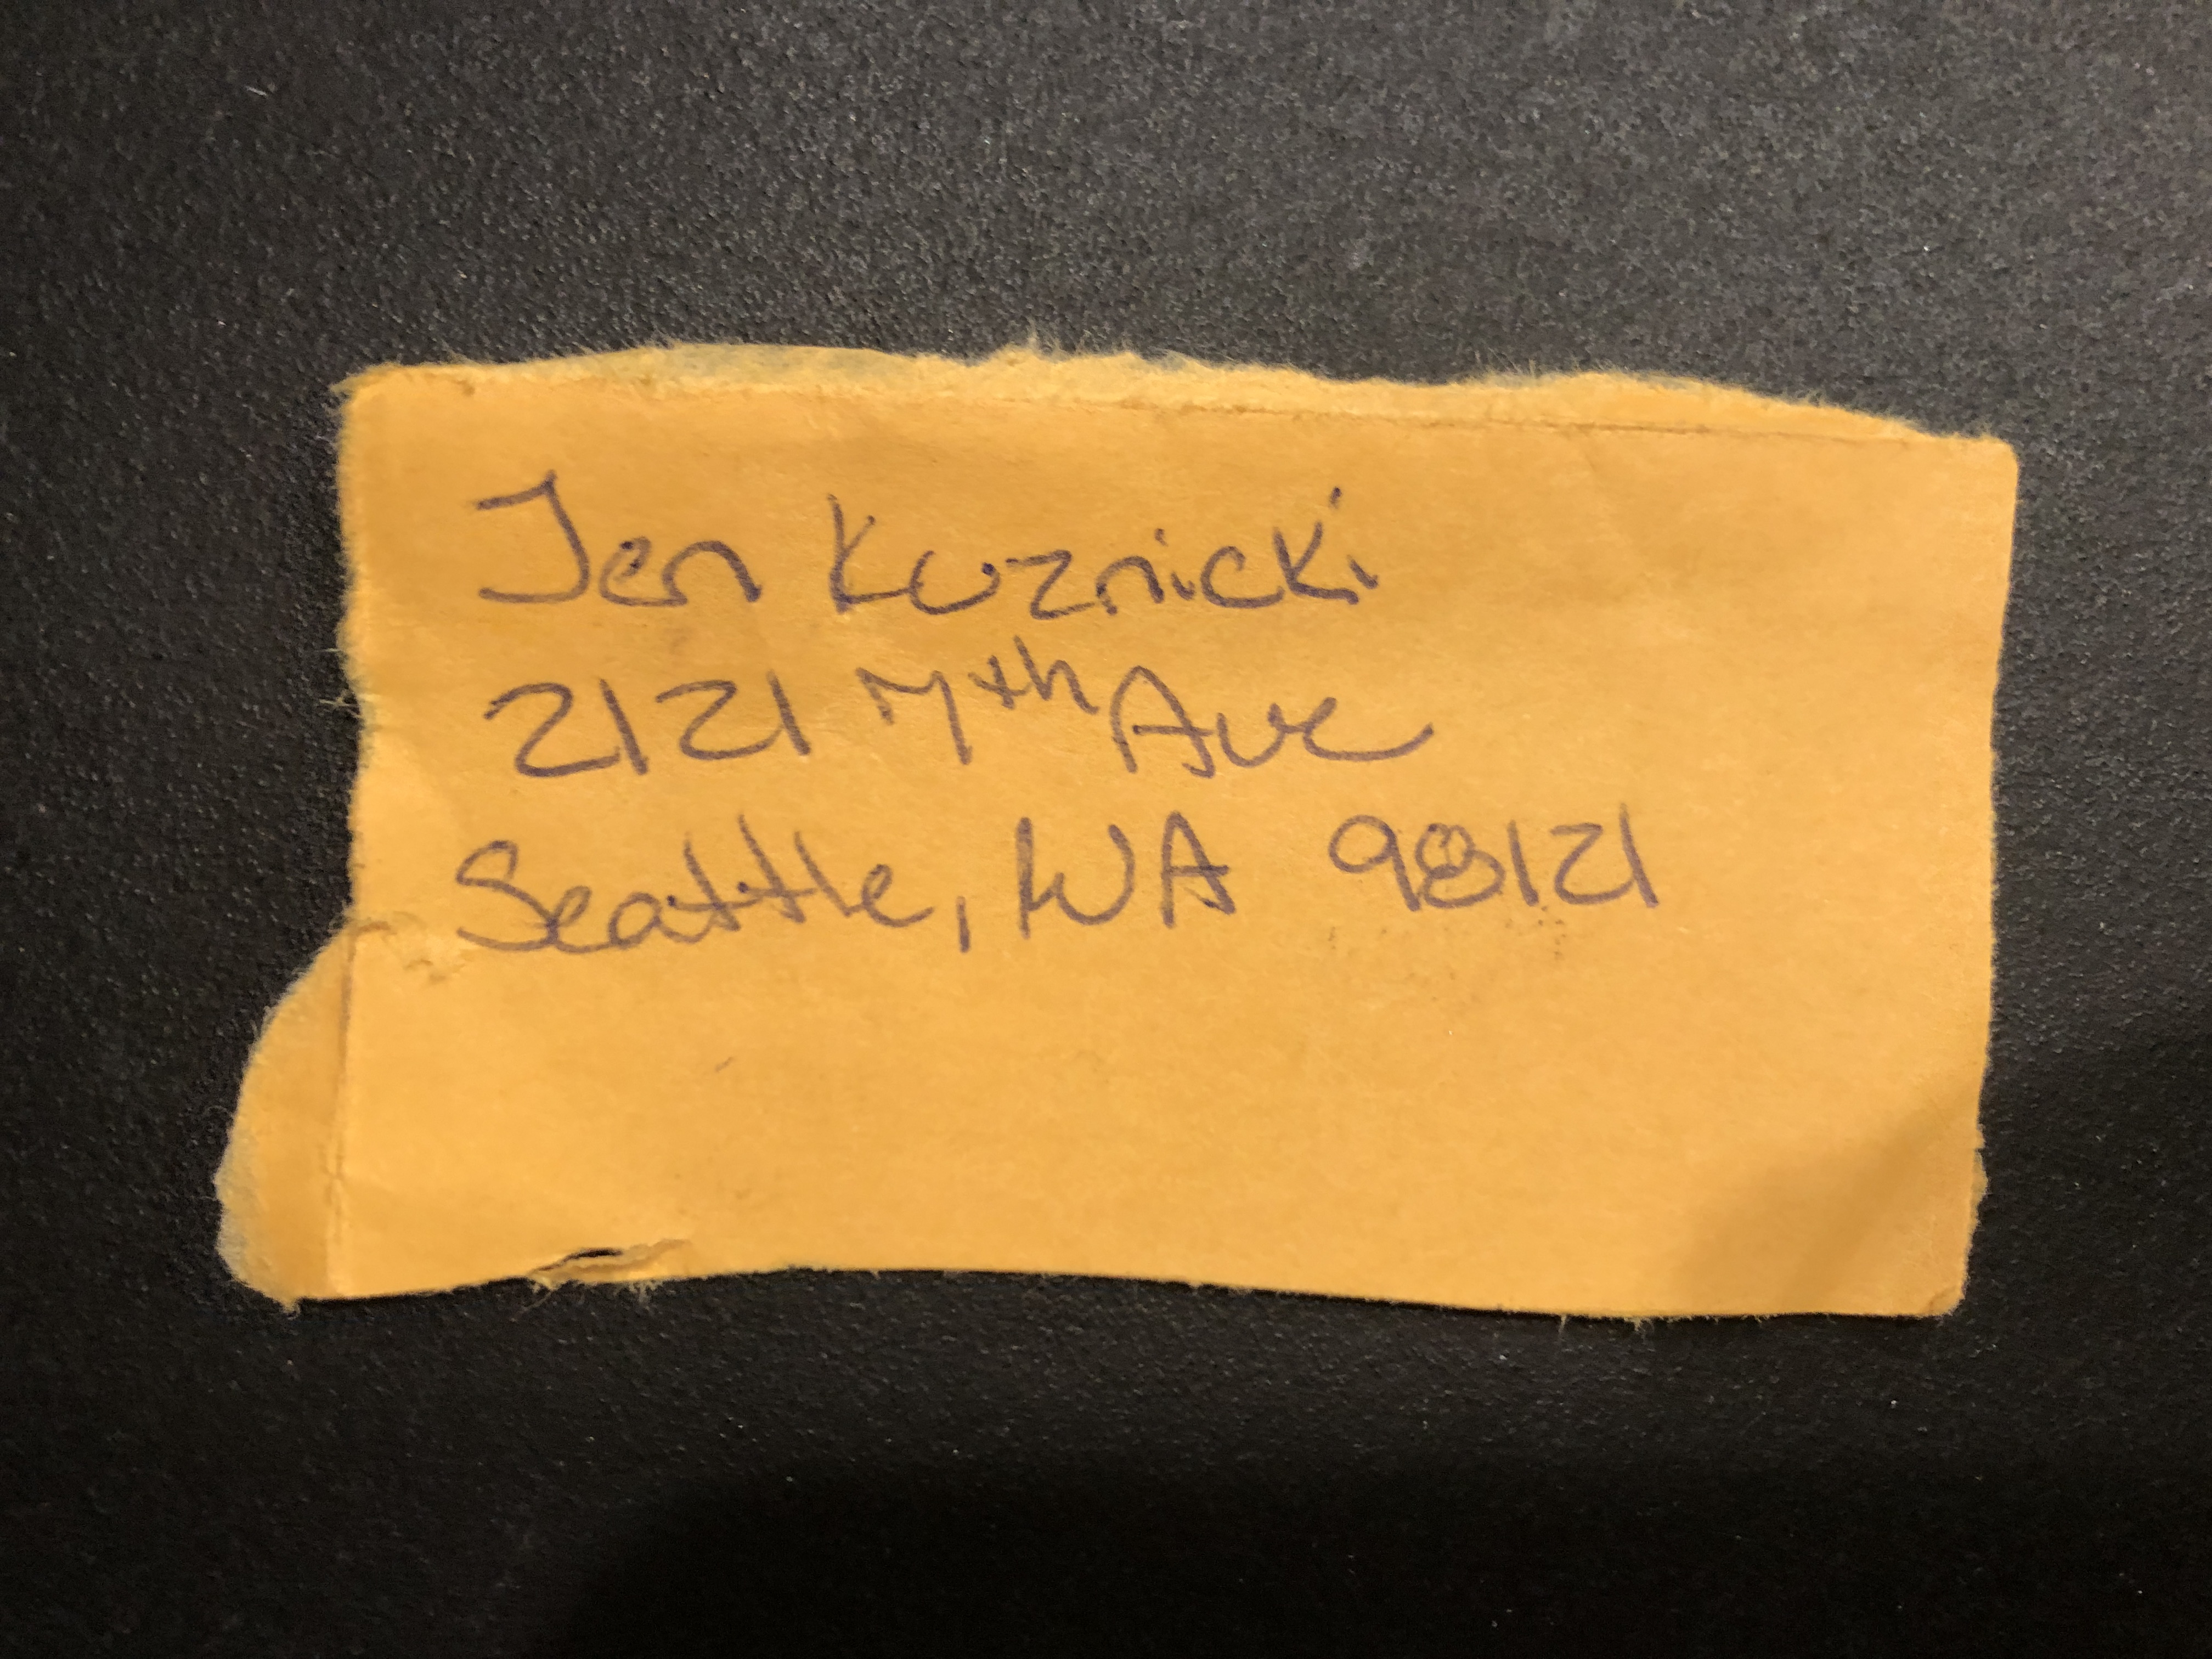 Jen Kuznicki
2121 7th Ave
Seattle, WA 98121